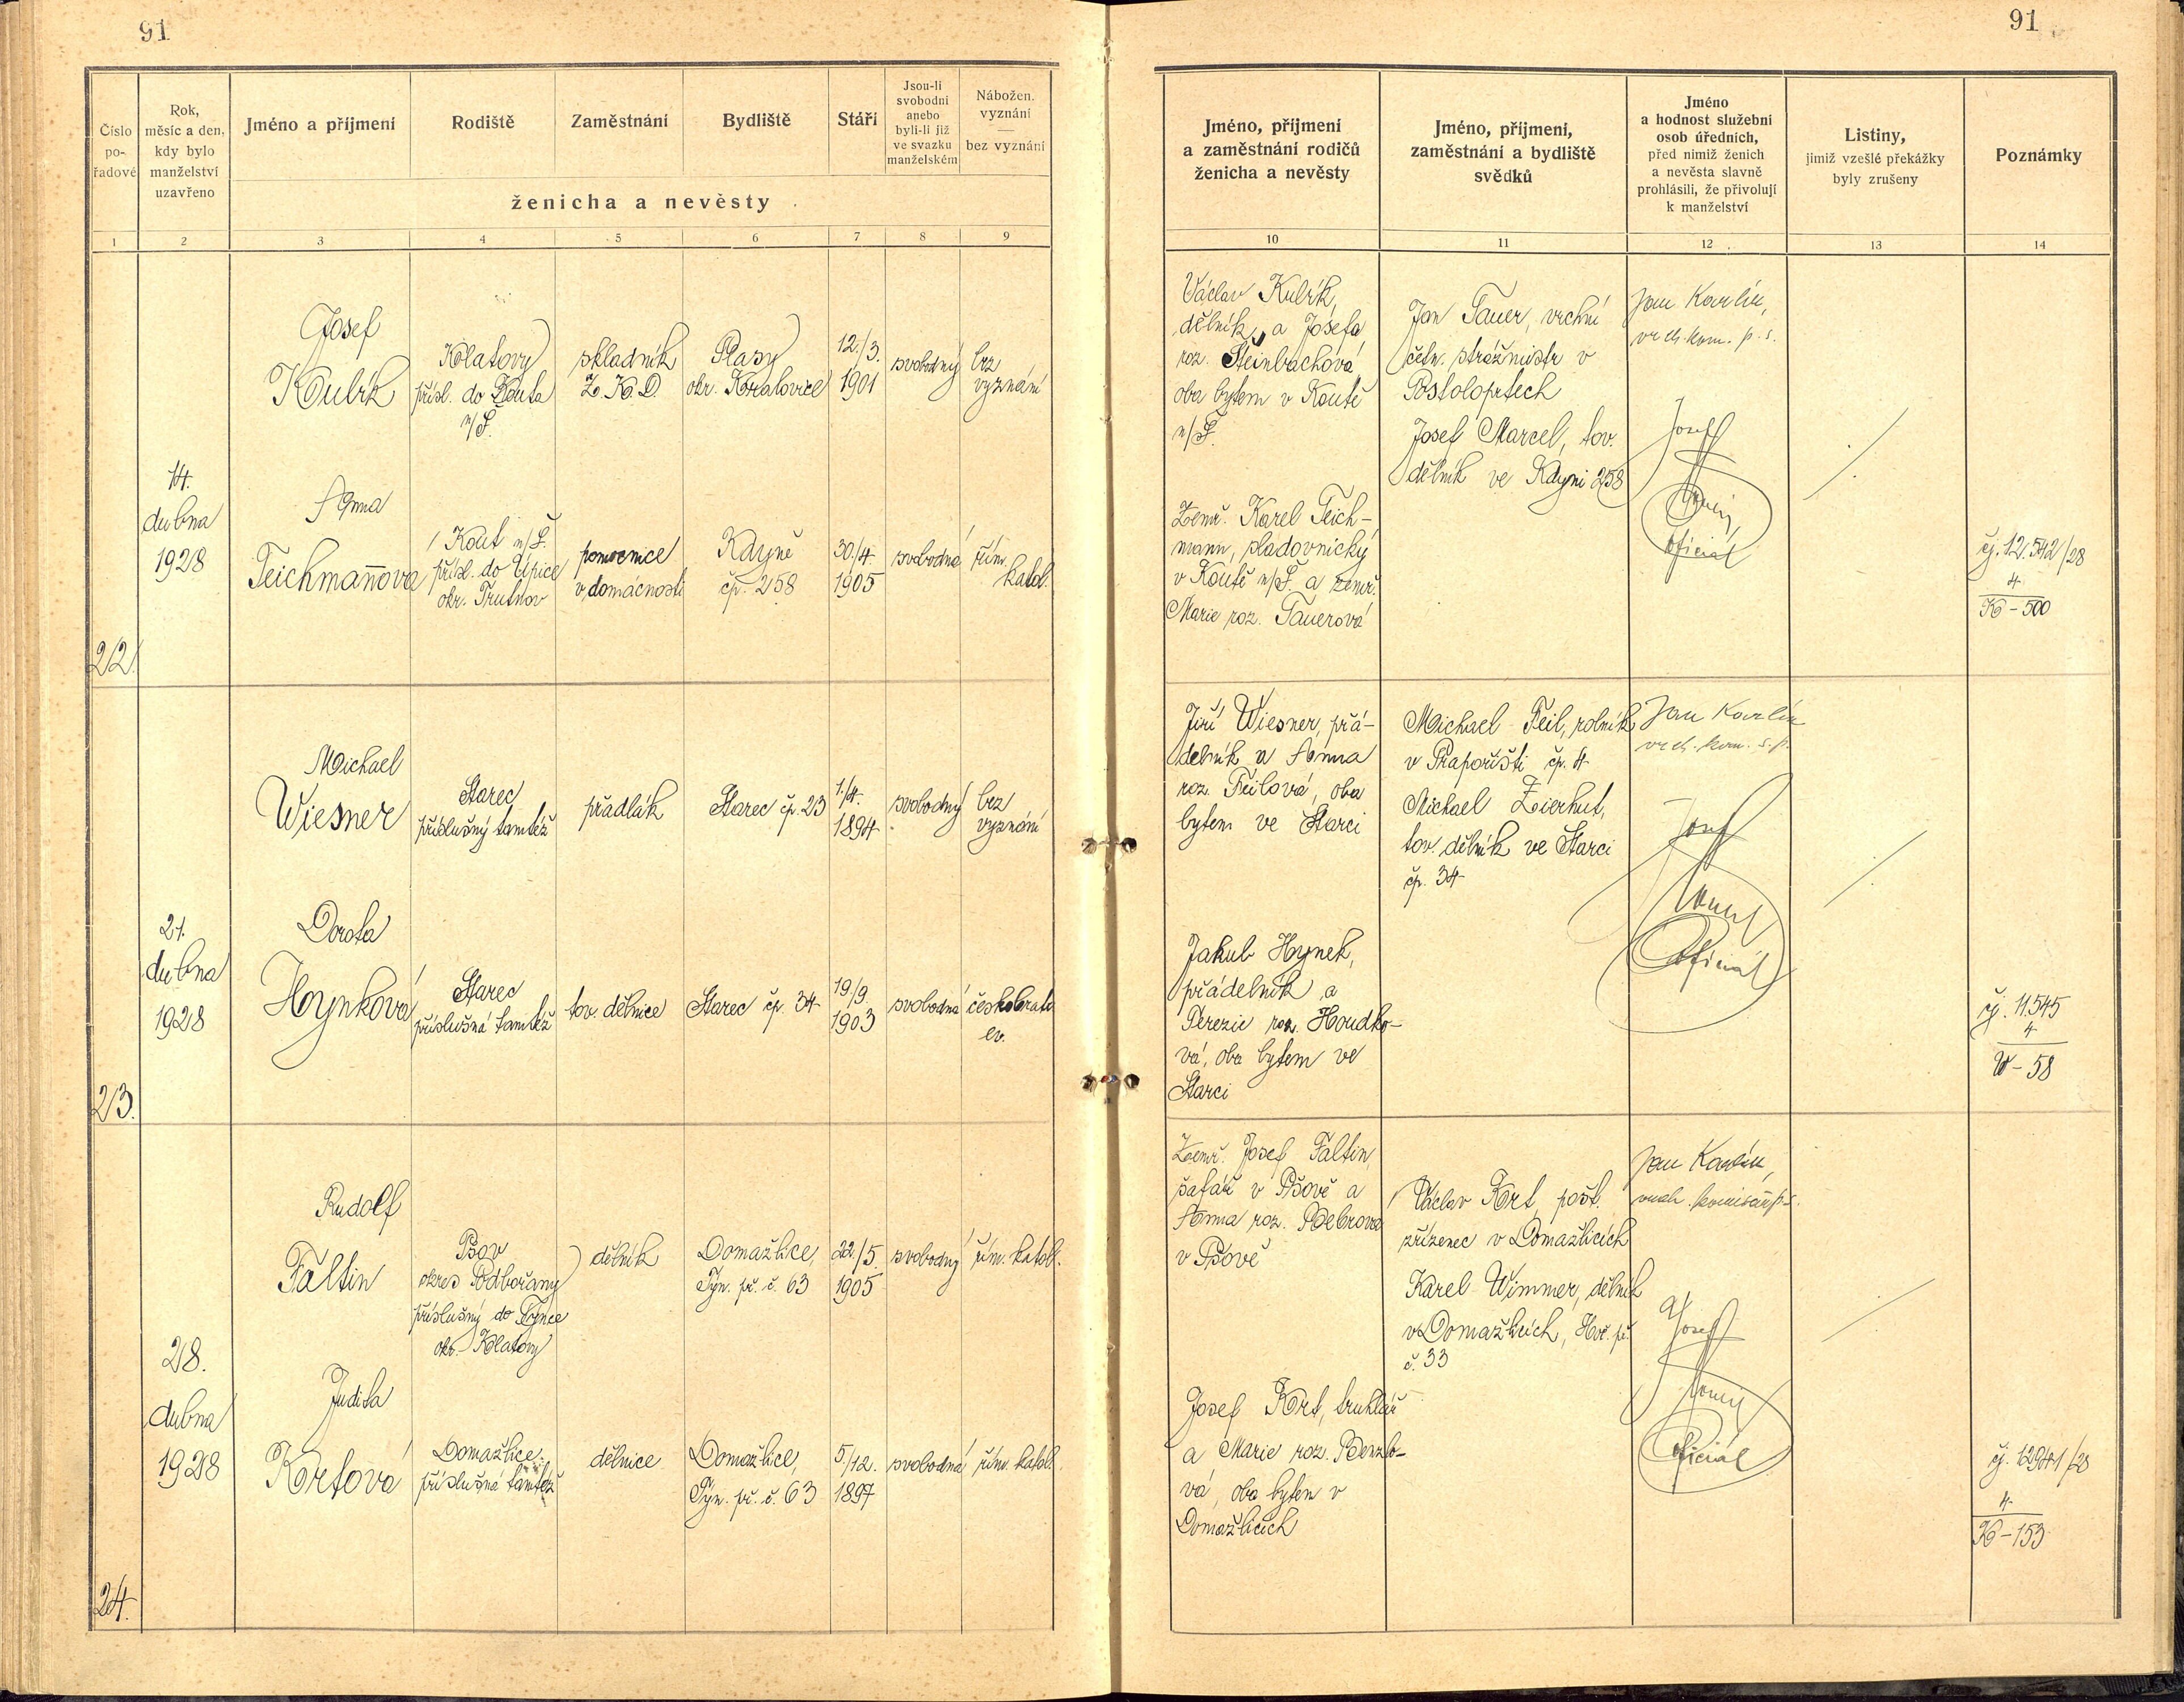 91
91
Číslo pořadové
Rok, měsíc a den, kdy bylo manželství uzavřeno
Jméno a příjmení
Rodiště
Zaměstnání
Bydliště
Stáří
Jsou-li svobodni anebo byli-li již ve svazku manželském
Nábožen. vyznání — bez vyznání
ženicha a nevěsty
1 2 3 4 5 6 7 8 9
Jméno, příjmení a zaměstnání rodičů ženicha a nevěsty
Jméno, příjmení, zaměstnání a bydliště svědků
Jméno a hodnost služební osob úředních, před nimiž ženich a nevěsta slavně prohlásili, že přivolují k manželství
Listiny, jimiž vzešlé překážky byly zrušeny
Poznámky
10 11 12 13 14
22.
14.
dubna
1928
Josef
Kubík
Klatovy
přísl. do Kouta
n/Š.
skladník
Z. K. D.
Plasy
okr. Kralovice
12./3.
1901
svobodný
bez
vyznání
Anna
Teichmannová
Kout n/Š.
přísl. do Úpice
okr. Trutnov
pomocnice
v domácnosti
Kdyně
čp. 258
30./4.
1905
svobodná
řím.
katol.
Václav Kubík,
dělník, a Josefa
roz. Steinbachová,
oba bytem v Koutě
n/Š.
Zemř. Karel Teich-
mann, sladovnický
v Koutě n/Š. a zemř.
Marie roz. Tauerová
Jan Tauer, vrchní
četn. strážmistr v
Postoloprtech
Josef Marcel, tov.
dělník ve Kdyni 258
Jan Karlín,
vrch. kom. p. s.
Josef
oficiál
čj. 12.542/28
4
K - 500
23.
21.
dubna
1928
Michael
Wiesner
Starec
příslušný tamtéž
přadlák
Starec čp. 23
1./4.
1894
svobodný
bez
vyznání
Dorota
Hynková
Starec
příslušná tamtéž
tov. dělnice
Starec čp. 34
19./9.
1903
svobodná
českobratr.
ev.
Jiří Wiesner, přá-
delník a Anna
roz. Feilová, oba
bytem ve Starci
Jakub Hynek,
přádelník a
Terezie roz. Houdko-
vá, oba bytem ve
Starci
Michael Feil, rolník
v Prapořišti čp. 4
Michael Zierhut,
tov. dělník ve Starci
čp. 34
Jan Karlín
vrch. kom. s. p.
Josef
Oficiál
čj. 11.545
4
W - 58
24.
28.
dubna
1928
Rudolf
Faltin
Pšov
okres Podbořany
příslušný do Týnce
okr. Klatovy
dělník
Domažlice,
Týn. př. č. 63
22./5.
1905
svobodný
řím. katol.
Judita
Kortová
Domažlice
příslušná tamtéž
dělnice
Domažlice,
Týn. př. č. 63
5./12.
1897
svobodná
řím. katol.
Zemř. Josef Faltin,
šafář v Pšově a
Anna roz. Bebrová
v Pšově
Josef Kort, truhlář
a Marie roz. Benzlo-
vá, oba bytem v
Domažlicích
Václav Kort, pošt.
zřízenec v Domažlicích
Karel Wimmer, dělník
v Domažlicích, Hoř. př.
č. 33
Jan Karlín,
vrch. komisař p. s.
Josef
Oficiál
čj. 12941/28
4
K - 153